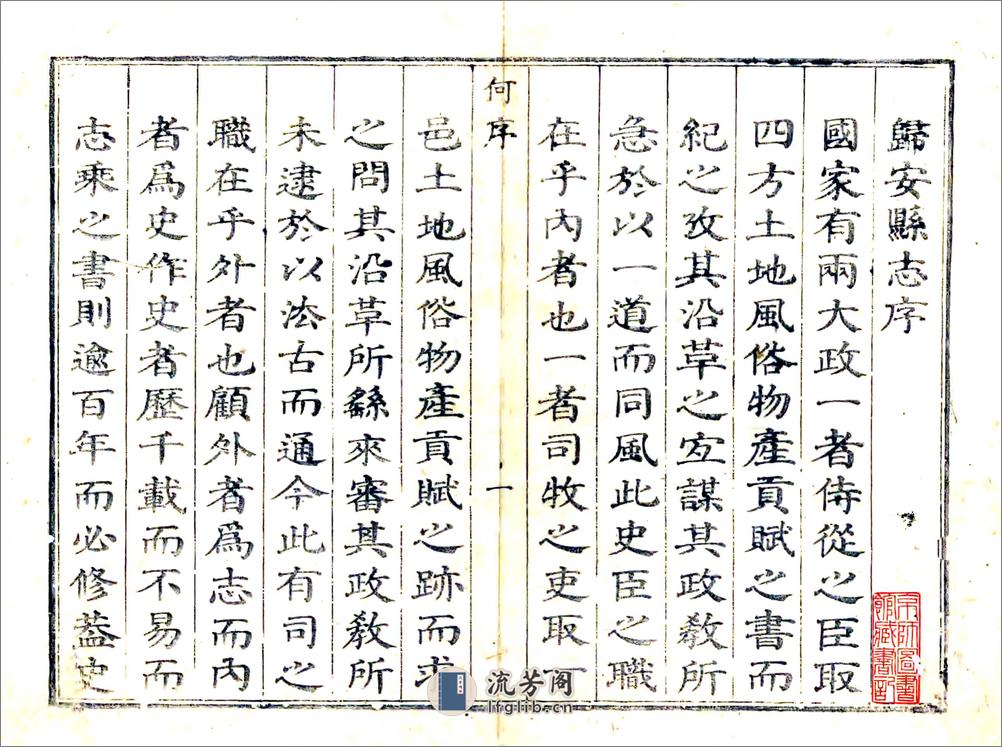 歸安縣志序
國家有兩大政一者侍從之臣取
四方土地風俗物產貢賦之書而
紀之攷其沿革之宐謀其政敎所
急於以一道而同風此史臣之職
在乎內者也一者司牧之吏取一
何序 一
邑土地風俗物產貢賦之跡而求
之問其沿革所繇來審其政敎所
未逮於以法古而通今此有司之
職在乎外者也顧外者爲志而內
者爲史作史者歷千載而不易而
志乘之書則逾百年而必修葢史
京師圖書
館藏書記
流芳阁
lfglib.cn